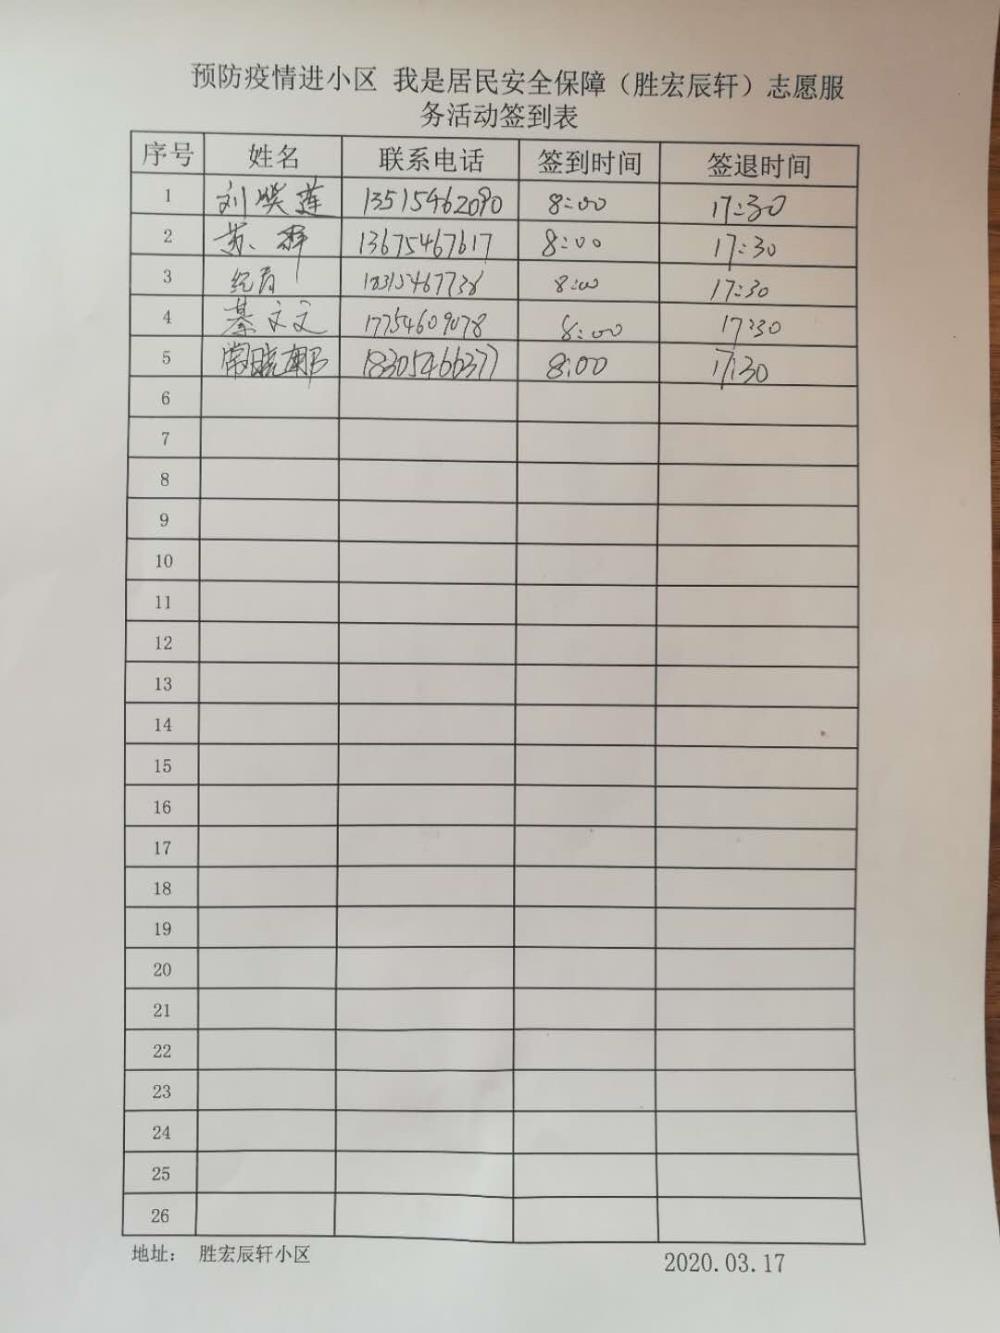 预防疫情进小区 我是居民安全保障（胜宏辰轩）志愿服
务活动签到表
序号 姓名 联系电话 签到时间 签退时间
1 刘 莲 13515462090 8:00 17:30
2 苏 13675467617 8:00 17:30
3 8:00 17:30
4 綦文文 17754609078 8:00 17:30
5 常晓娜 18305466377 8:00 17:30
6
7
8
9
10
11
12
13
14
15
16
17
18
19
20
21
22
23
24
25
26
地址： 胜宏辰轩小区 2020.03.17